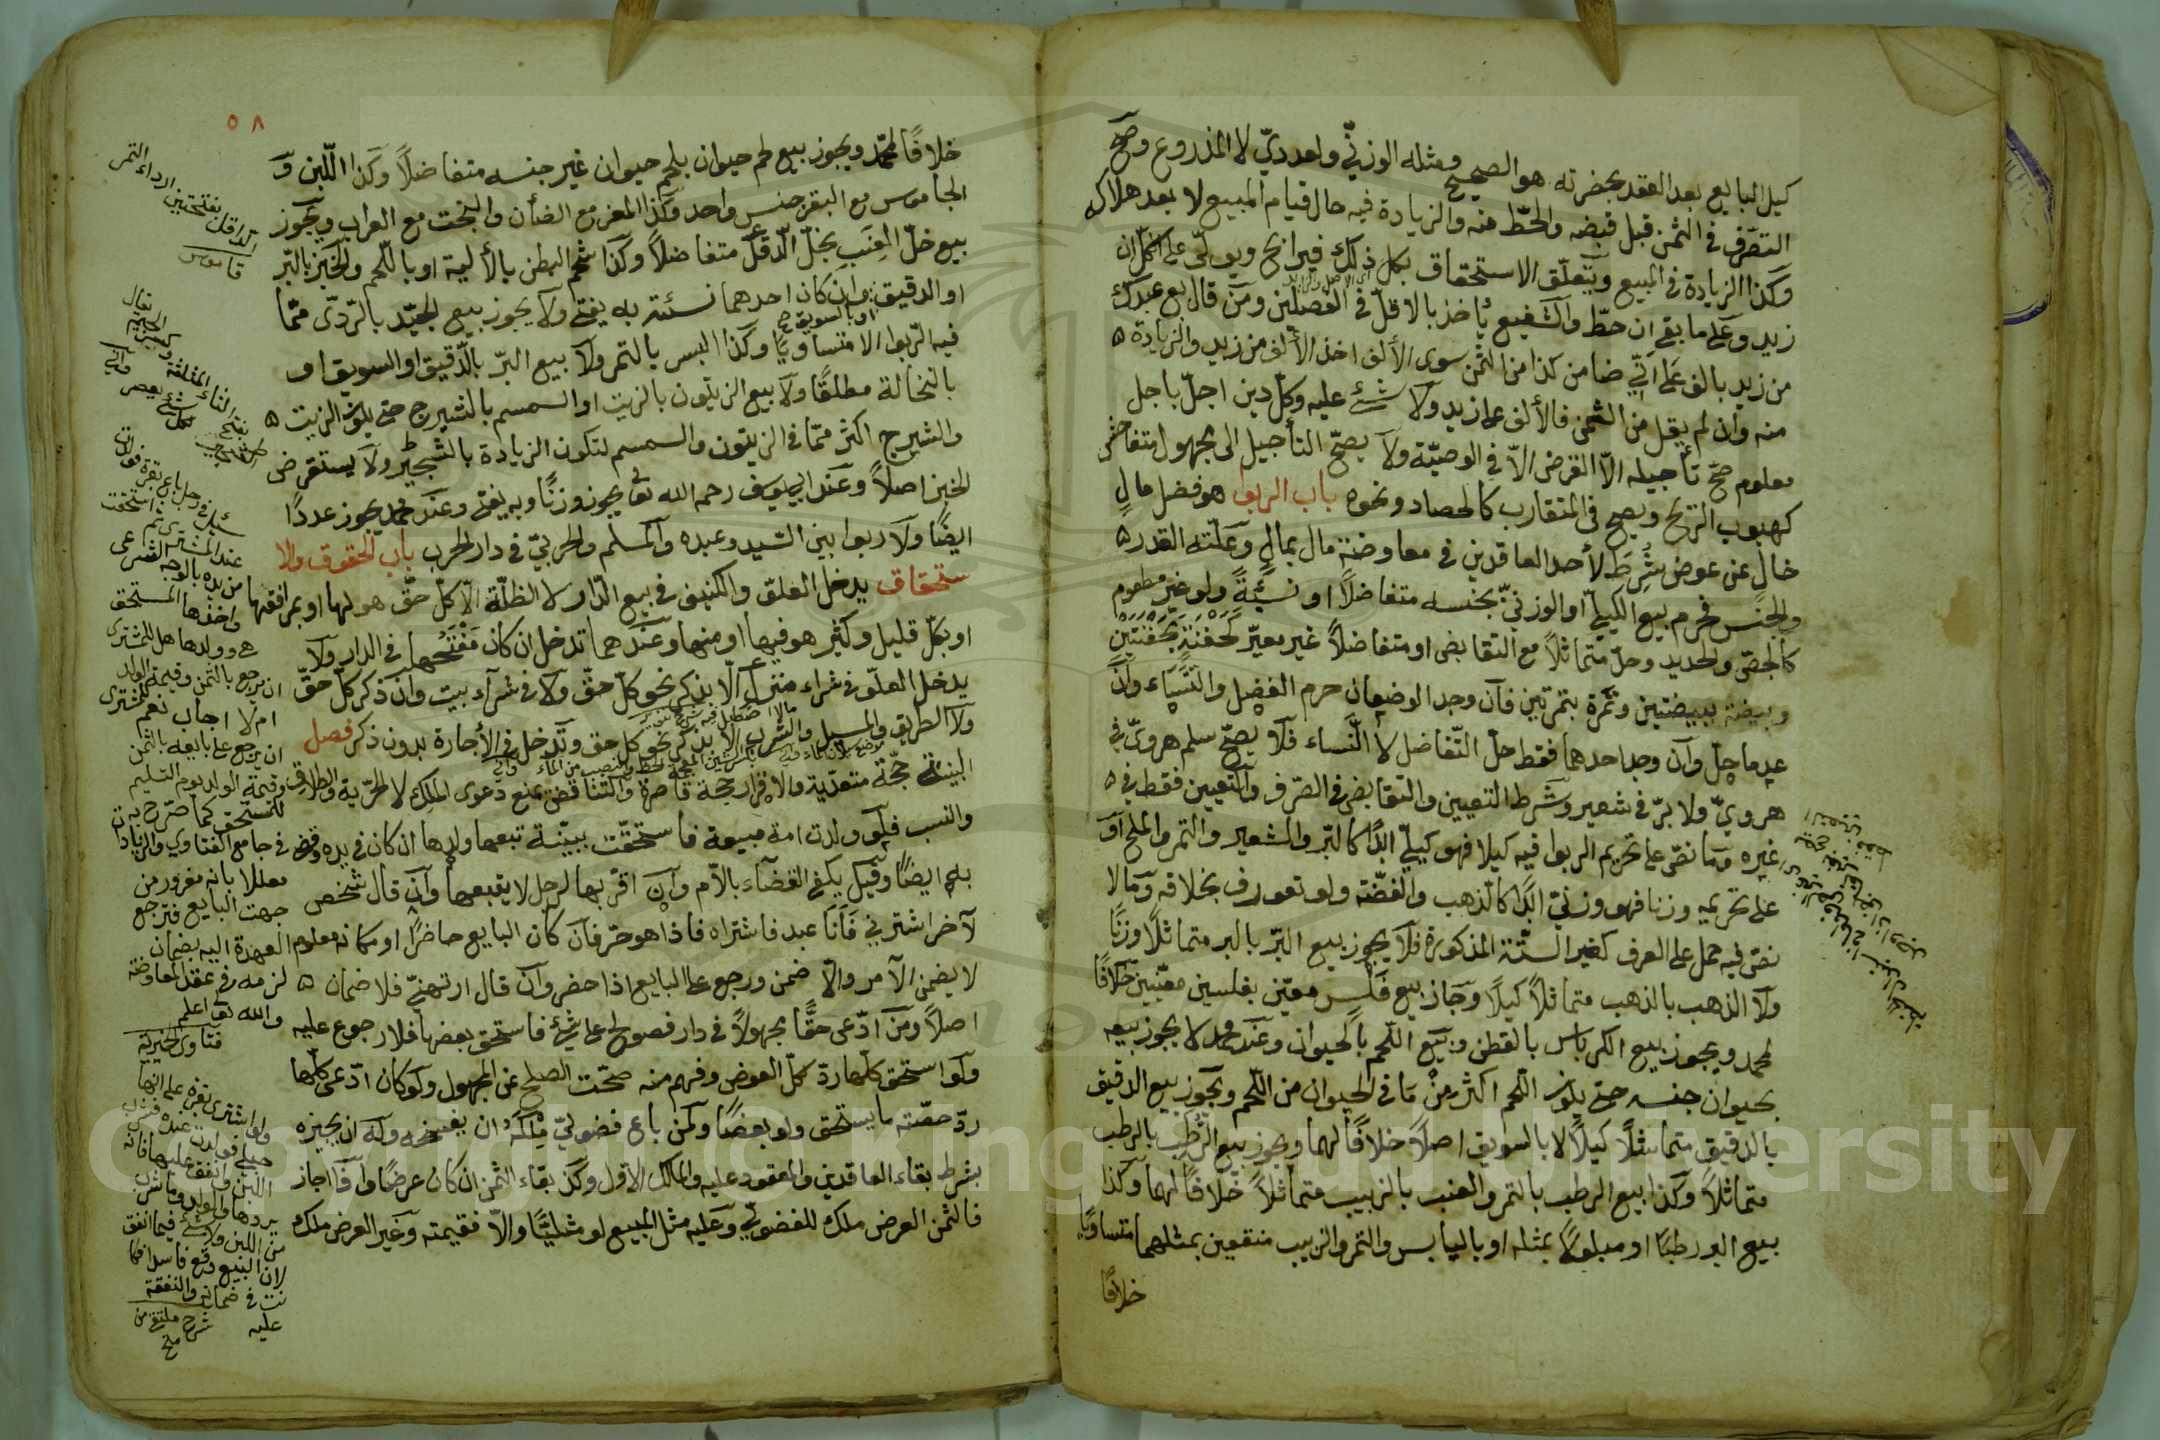 كيل البايع بعد العقد بحضرته هو الصحيح ومثله الوزنيّ والعدديّ لا المذروع وصحّ
التصرّف في الثمن قبل قبضه والحطّ منه والزيادة فيه حال قيام المبيع لا بعد هلاكه
وكذا الزيادة في المبيع ويتعلّق الاستحقاق بكل ذلك فيرابح ويولّى على الكلّ ان
زيد وعلى ما بقي ان حطّ والشفيع ياخذ بالاقلّ في الفصلين ومن قال بع عبدك
من زيد بالف على انّي ضامن كذا من الثمن سوى الألف اخذ الألف من زيد والزيادة
منه وان لم يقل من الثمن فالألف على زيد ولا شئ عليه وكلّ دين اجلّ باجل
معلوم صحّ تأجيله الاّ القرض الاّ في الوصيّة ولا يصحّ التأجيل الى مجهول متفاحش
كهبوب الريح ويصح في المتقارب كالحصاد ونحوه باب الربوا هو فضل مال
خال عن عوض شرط لأحد العاقدين في معاوضة مال بمال وعلّته القدر
والجنس فحرم بيع الكيليّ او الوزنيّ بجنسه متفاضلاً او نسيئة ولو غير مطعوم
كالجصّ والحديد وحلّ متماثلاً مع التقابض او متفاضلاً غير معيّر كحفنة بحفنتين
وبيضة ببيضتين وتمرة بتمرتين فان وجد الوصفان حرم الفضل والنّساء وان
عدما حلّ وان وجد احدهما فقط حلّ التّفاضل لا النّساء فلا يصحّ سلم هرويّ في
هرويّ ولا برّ في شعير وشرط التعيين والتقابض في الصّرف والتعيين فقط في
غيره وما نصّ على تحريم الربوا فيه كيلا فهو كيليّ ابدًا كالبّر والشعير والتمر والملح او
على تحريمه وزنا فهو وزنيّ ابدًا كالذهب والفضّة ولو تعورف بخلافه وما لا
نصّ فيه حمل على العرف كغير الستّة المذكورة فلا يجوز بيع البّر بالبر متماثلاً وزنًا
ولا الذهب بالذهب متماثلاً كيلاً وجاز بيع فلس معيّن بفلسين معيّنين خلافًا
لمحمد ويجوز بيع الكرباس بالقطن وبيع اللّحم بالحيوان وعند محمد لا يجوز بيعه
بحيوان جنسه حتى يكون اللّحم اكثر من ما في الحيوان من اللّحم ويجوز بيع الدقيق
بالدقيق متماثلاً كيلاً لا بالسويق اصلاً خلافًا لهما ويجوز بيع الرّطب بالرطب
متماثلاً وكذا بيع الرطب بالتمر والعنب بالزبيب متماثلاً خلافًا لهما وكذا
بيع البر رطبًا او مبلولاً بمثله او باليابس والتمر والزبيب منقعين بمثلهما متساويًا
خلافًا
٥٨
خلافًا لمحمّد ويجوز بيع لحم حيوان بلحم حيوان غير جنسه متفاضلاً وكذا اللّبن و
الجاموس مع البقر جنس واحد وكذا المعز مع الضأن والبخت مع العراب ويجوز
بيع خلّ العنب بخلّ الدّقل متفاضلاً وكذا شحم البطن بالألية او باللّحم والخبز بالبّر
او الدقيق وان كان احدهما نسئة به يفتى ولا يجوز بيع الجيّد بالرّدىّ ممّا
او بالسويق صح
فيه الرّبوا الا متساويًا وكذا البسر بالتمر ولا بيع البرّ بالدّقيق او السويق او
بالنخالة مطلقًا ولا بيع الزيتون بالزيت او السمسم بالشيرج حتى يكون الزيت
والشيرج اكثر ممّا في الزيتون والسمسم لتكون الزيادة بالثجير ولا يستقرض
الخبز اصلاً وعند ابي يوسف رحمه الله تعالى يجوز وزنًا وبه يفتى وعند محمد يجوز عددًا
ايضًا ولا ربوا بين السّيد وعبده والمسلم والحربيّ في دار الحرب باب الحقوق والا
ستحقاق يدخل العلوّ والكنيف في بيع الدّار لا الظلّة الاّ بكلّ حقّ هو لها او بمرافقها
او بكلّ قليل وكثير هو فيها او منها وعندهما تدخل ان كان مفتحها في الدار ولا
يدخل العلوّ في شراء منزل الاّ بذكر نحو كلّ حقّ ولا في شراء بيت وان ذكر كلّ حقّ
ولا الطريق والمسيل والشّرب الاّ بذكر نحو كل حق وتدخل في الأجارة بدون ذكر فصل
البيّنة حجّة متعدّية والاقرار حجة قاصرة والتناقض يمنع دعوى الملك لا الحرّية والطلاق
والنسب فلو ولدت امة مبيعة فاستحقّت ببيّنة تبعها ولدها ان كان في يده وقضى
به ايضًا وقيل يكفي القضاء بالأم وان اقرّ بها لرجل لا يتبعها وان قال شخص
لآخر اشترني فأنا عبد فاشتراه فاذا هو حرّ فان كان البايع حاضرًا او مكانه معلوم
لا يضمن الآمر والاّ ضمن ورجع على البايع اذا حضر وان قال ارتهنّي فلا ضمان
اصلاً ومن ادّعى حقًّا مجهولاً في دار فصولح على شئ فاستحق بعضها فلا رجوع عليه
ولو استحق كلّها ردّ كلّ العوض وفهم منه صحّت الصلح عن المجهول ولو كان ادّعى كلّها
ردّ حصّته ما يستحق ولو بعضًا ولمن باع فضوليّ ملكه ان يفسخه وله ان يجيزه
بشرط بقاء العاقدين والمعقود عليه والمالك الاوّل وكذا بقاء الثمن ان كان عرضًا واذا اجاز
فالثمن العرض ملك للفضوليّ وعليه مثل المبيع لو مثليًّا والاّ فقيمته وغير العرض ملك
الدقل بفتحتين ارداء التمر
قاموس
سئل في رجل باع بقرة فولدت
عند المشتري ثم استحقت
من يده بالوجه الشرعي
واخذها المستحق
هي وولدها هل للمشتري
ان يرجع بالثمن وقيمة الولد
ام لا اجاب نعم للمشتري
ان يرجع على بايعه بالثمن
وقيمة الولد يوم التسليم
للمستحق كما صرّح به
في جامع الفتاوي
معللا بانه مغرور من
جهت البايع فترجع
العهدة اليه بضمان
لزمه في عقد المعاوضة
والله تعالى اعلم
فتاوى الخيرية
ولو اشترى بقرة على انها
لان البيع وقع فاسدا
في ضمانه والنفقة
عليه شرح ملتقى
Copyright © King Saud University